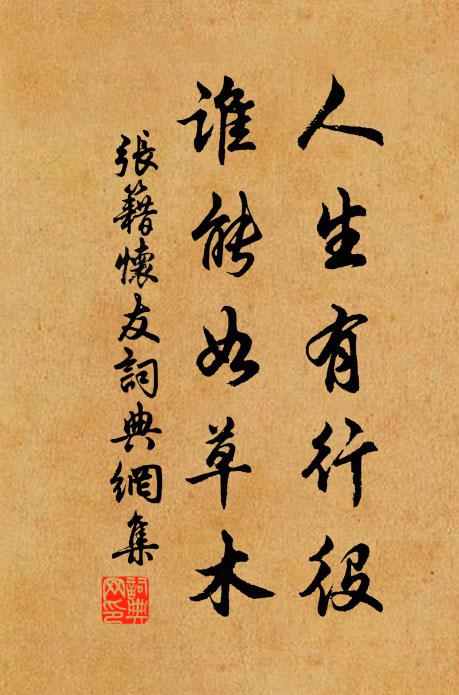 人生有行役
誰能如草木
張籍懷友詞典網集
詞典網印